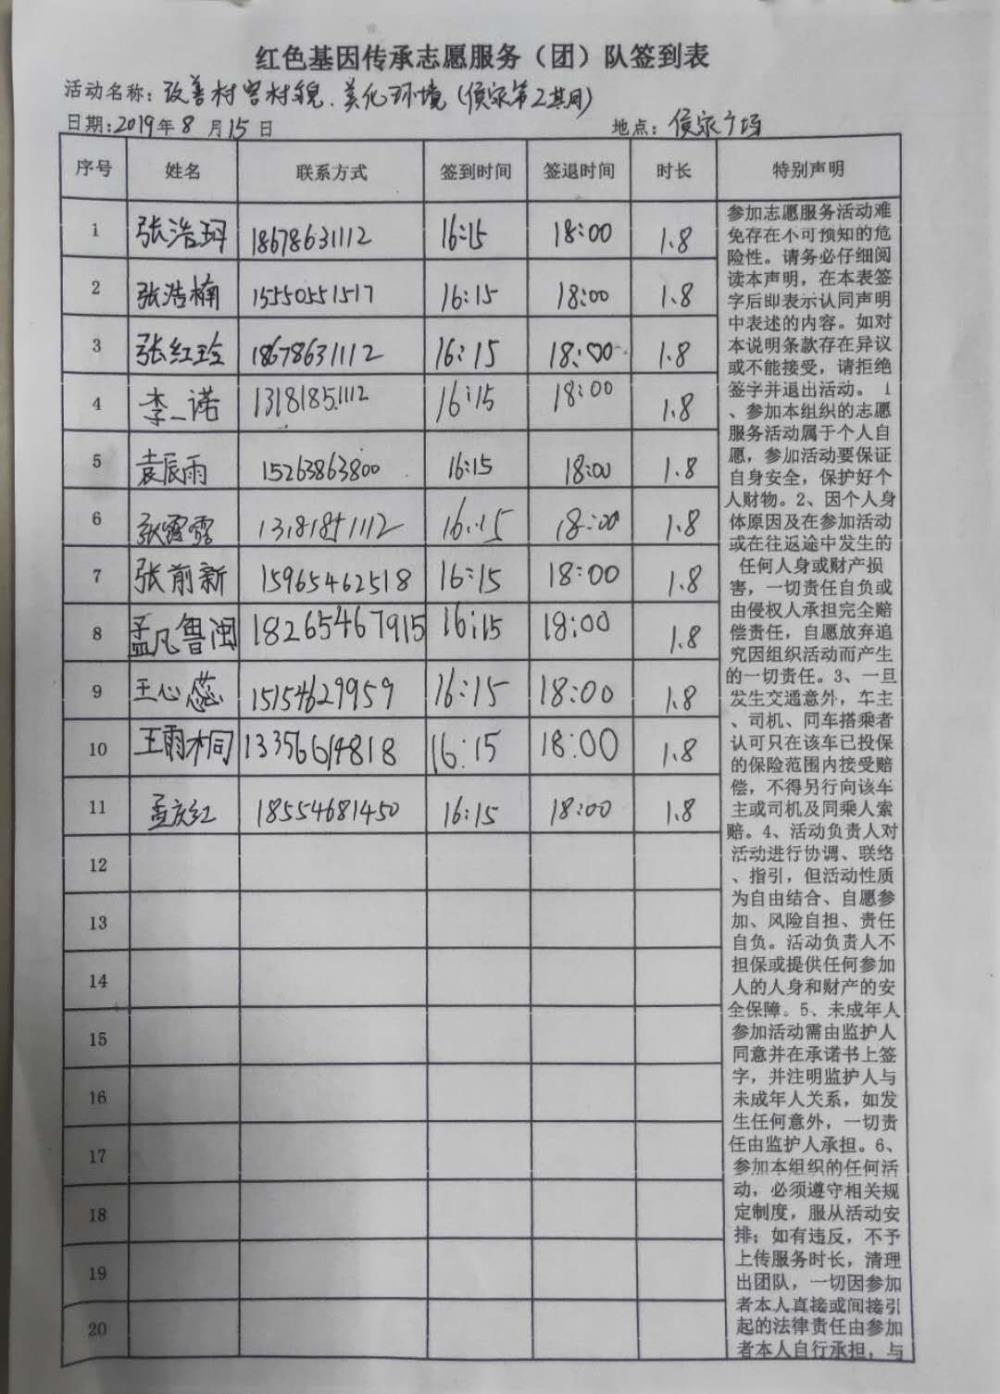 红色基因传承志愿服务（团）队签到表
活动名称：改善村容村貌、美化环境（侯家第2其月）
日期：2019年8月15日 地点：侯家广场
序号 姓名 联系方式 签到时间 签退时间 时长 特别声明
1 张浩玥 18678631112 16:15 18:00 1.8
2 张浩楠 15550551517 16:15 18:00 1.8
3 张红玲 18678631112 16:15 18:00 1.8
4 李一诺 13181851112 16:15 18:00 1.8
5 袁辰雨 15263863800 16:15 18:00 1.8
6 张露露 13181851112 16:15 18:00 1.8
7 张前新 15965462518 16:15 18:00 1.8
8 孟凡鲁闽 18265467915 16:15 18:00 1.8
9 王心蕊 15154629959 16:15 18:00 1.8
10 王雨桐 13356614818 16:15 18:00 1.8
11 孟庆红 18554681450 16:15 18:00 1.8
12
13
14
15
16
17
18
19
20
参加志愿服务活动难
免存在不可预知的危
险性。请务必仔细阅
读本声明，在本表签
字后即表示认同声明
中表述的内容。如对
本说明条款存在异议
或不能接受，请拒绝
签字并退出活动。 1
、参加本组织的志愿
服务活动属于个人自
愿，参加活动要保证
自身安全，保护好个
人财物。2、因个人身
体原因及在参加活动
或在往返途中发生的
任何人身或财产损
害，一切责任自负或
由侵权人承担完全赔
偿责任，自愿放弃追
究因组织活动而产生
的一切责任。3、一旦
发生交通意外，车主
、司机、同车搭乘者
认可只在该车已投保
的保险范围内接受赔
偿，不得另行向该车
主或司机及同乘人索
赔。4、活动负责人对
活动进行协调、联络
、指引，但活动性质
为自由结合、自愿参
加、风险自担、责任
自负。活动负责人不
担保或提供任何参加
人的人身和财产的安
全保障。5、未成年人
参加活动需由监护人
同意并在承诺书上签
字，并注明监护人与
未成年人关系，如发
生任何意外，一切责
任由监护人承担。6、
参加本组织的任何活
动，必须遵守相关规
定制度，服从活动安
排；如有违反，不予
上传服务时长，清理
出团队，一切因参加
者本人直接或间接引
起的法律责任由参加
者本人自行承担，与